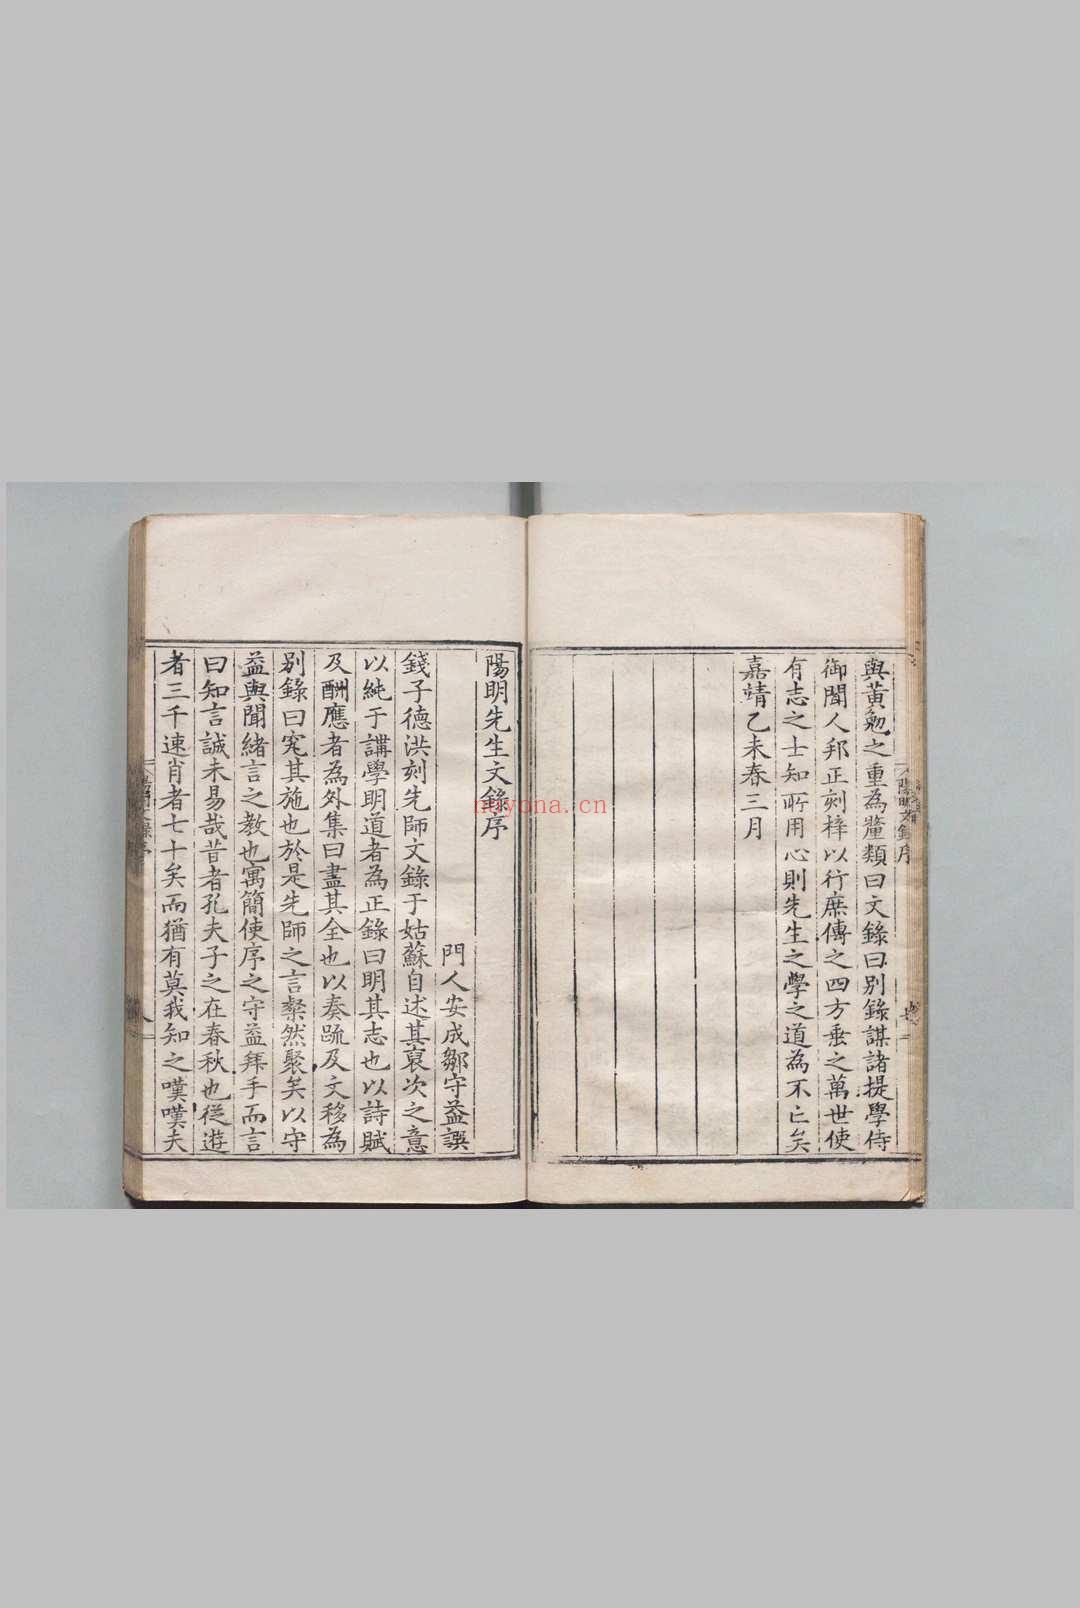 與黃勉之重為釐類曰文錄曰别錄謀諸提學侍
御聞人邦正刻梓以行庶傳之四方垂之萬世使
有志之士知所用心則先生之學之道為不亡矣
嘉靖乙未春三月
陽明先生文錄序
門人安成鄒守益譔
錢子德洪刻先師文錄于姑蘇自述其裒次之意
以純于講學明道者為正錄曰明其志也以詩賦
及酬應者為外集曰盡其全也以奏疏及文移為
别錄曰究其施也於是先師之言粲然聚矣以守
益與聞緒言之教也寓簡使序之守益拜手而言
曰知言誠未易哉昔者孔夫子之在春秋也從遊
者三千速肖者七十矣而猶有莫我知之嘆嘆夫
nayona.cn